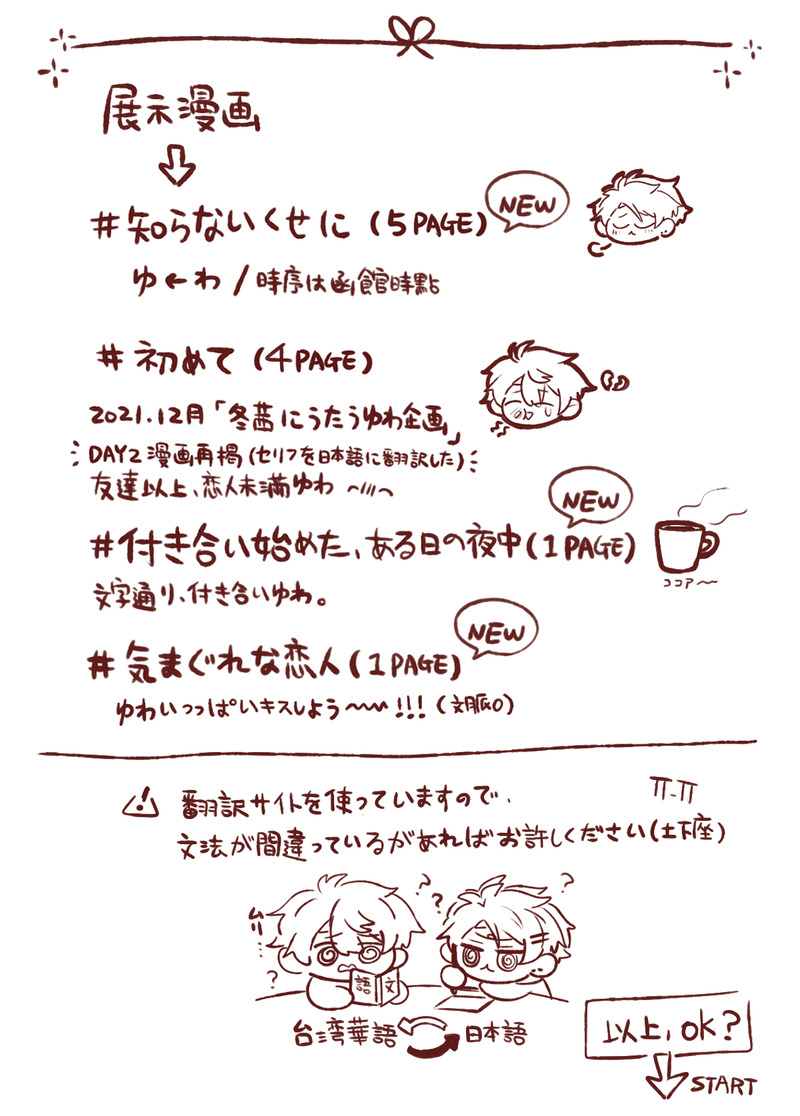 展示漫画
#知らないくせに(5PAGE)
NEW
ゆ←わ/時序は函館時點
#初めて(4PAGE)
2021.12月「冬茜にうたうゆわ企画」
DAY2漫画再掲(セリフを日本語に翻訳した)
友達以上、恋人未満ゆわ
NEW
#付き合い始めた、ある日の夜中(1PAGE)
ココア〜
文字通り、付き合いゆわ。
NEW
#気まぐれな恋人(1PAGE)
ゆわいっつぱいキスしよう〜〜!!!(文脈0)
翻訳サイトを使っていますので、
文法が間違っているがあればお許しください(土下座)
ムリ…
?
??
?
語文
台湾華語
日本語
以上,OK?
START